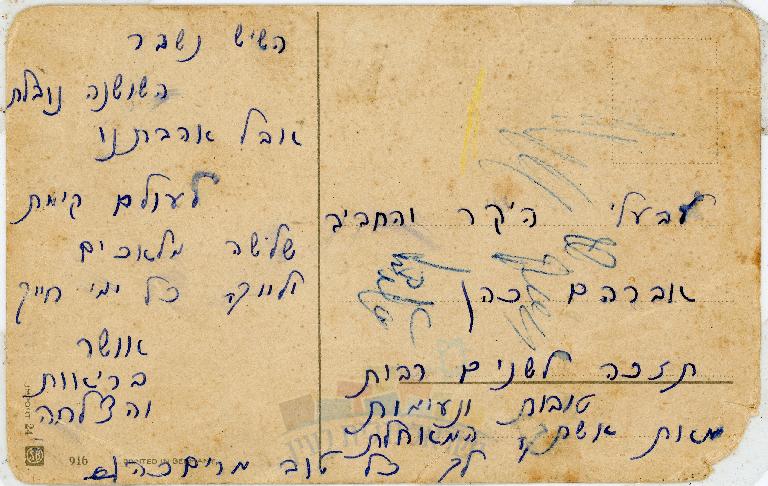 לבעלי היקר והחביב
אברהם כהן
תזכה לשנים רבות
טובות ונעימות
מאת אשתך המאחלת
לך כל טוב מרים כהן
השיש נשבר
השושנה נובלת
אבל אהבתנו
לעולם קימת
שלישה מלאכים
ילווקה כל ימי חייך
אושר
בריאות
והצלחה
916 PRINTED IN GERMANY